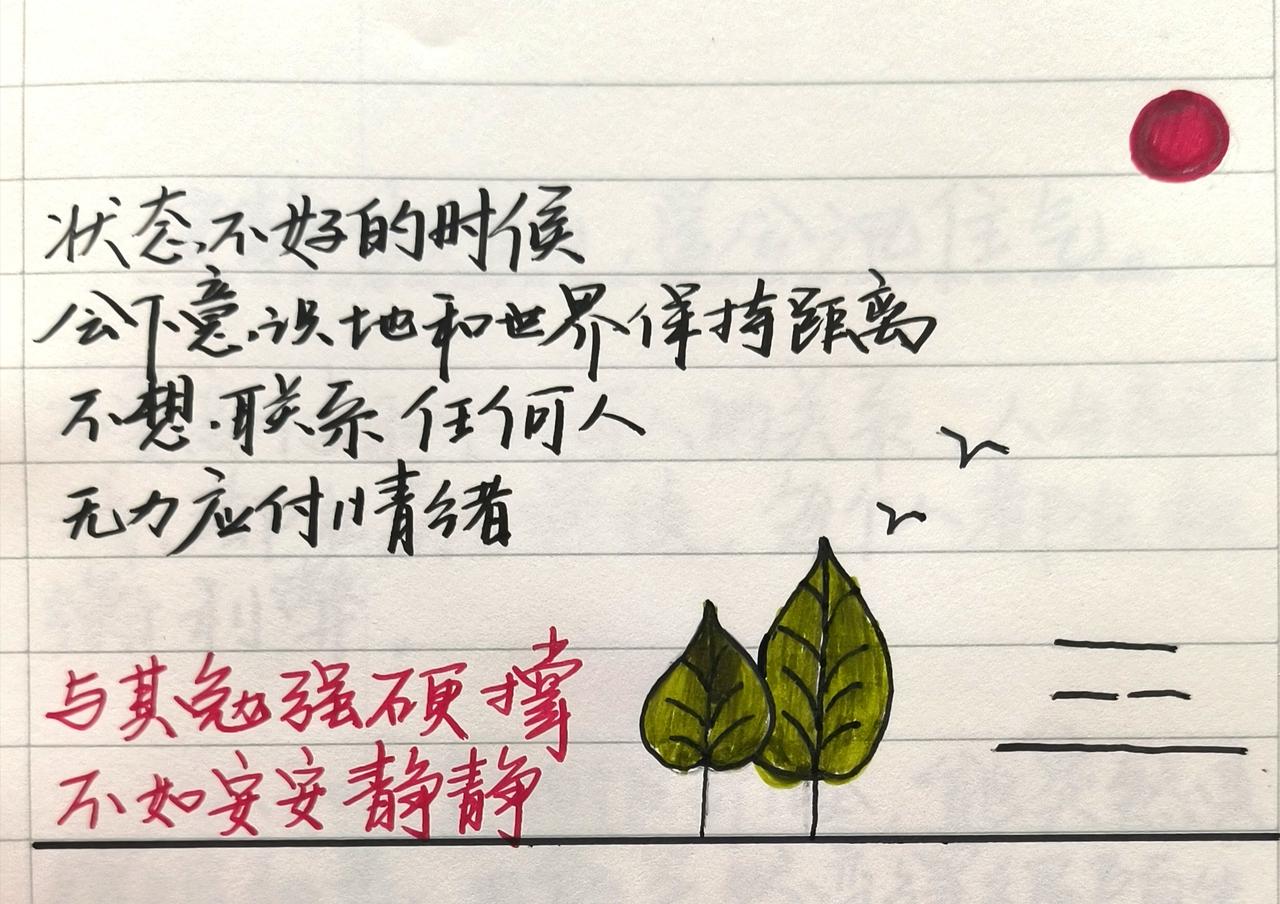 状态不好的时候
会下意识地和世界保持距离
不想联系任何人
无力应付情绪
与其勉强硬撑
不如安安静静